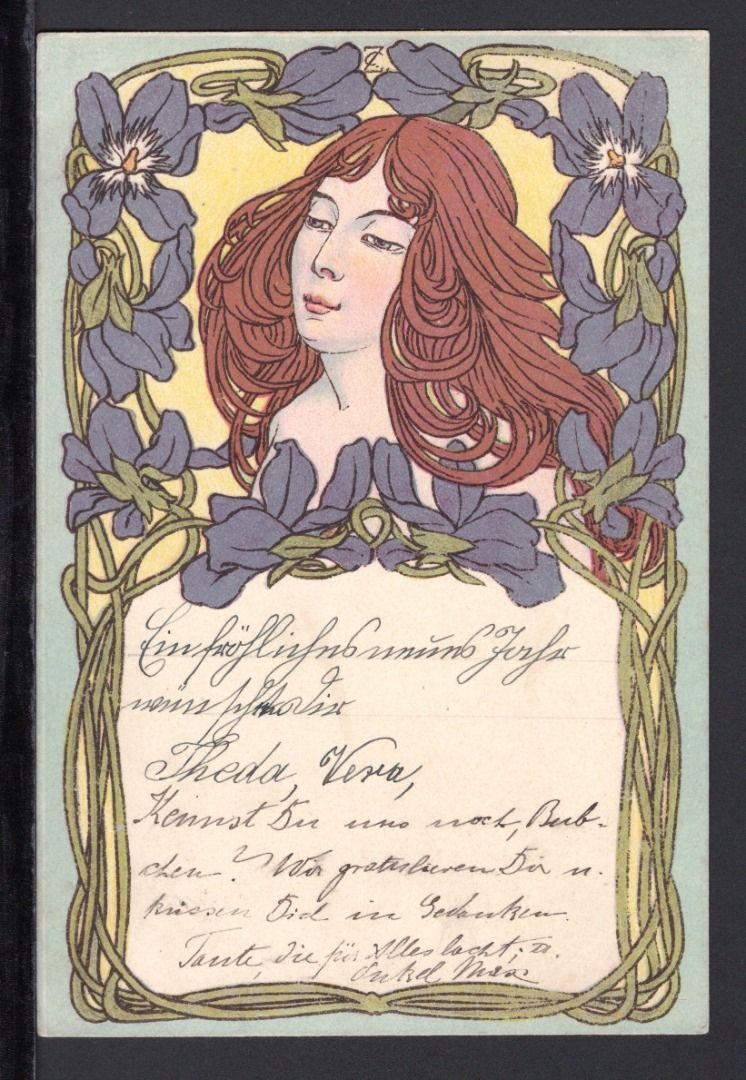 Ein fröhliches neues Jahr
wünscht dir
Theda, Vera,
Kennst Du uns noch, Bub-
chen? Wir gratulieren Dir u.
küssen Dich in Gedanken.
Tante, die für Alles lacht, u.
Onkel Max